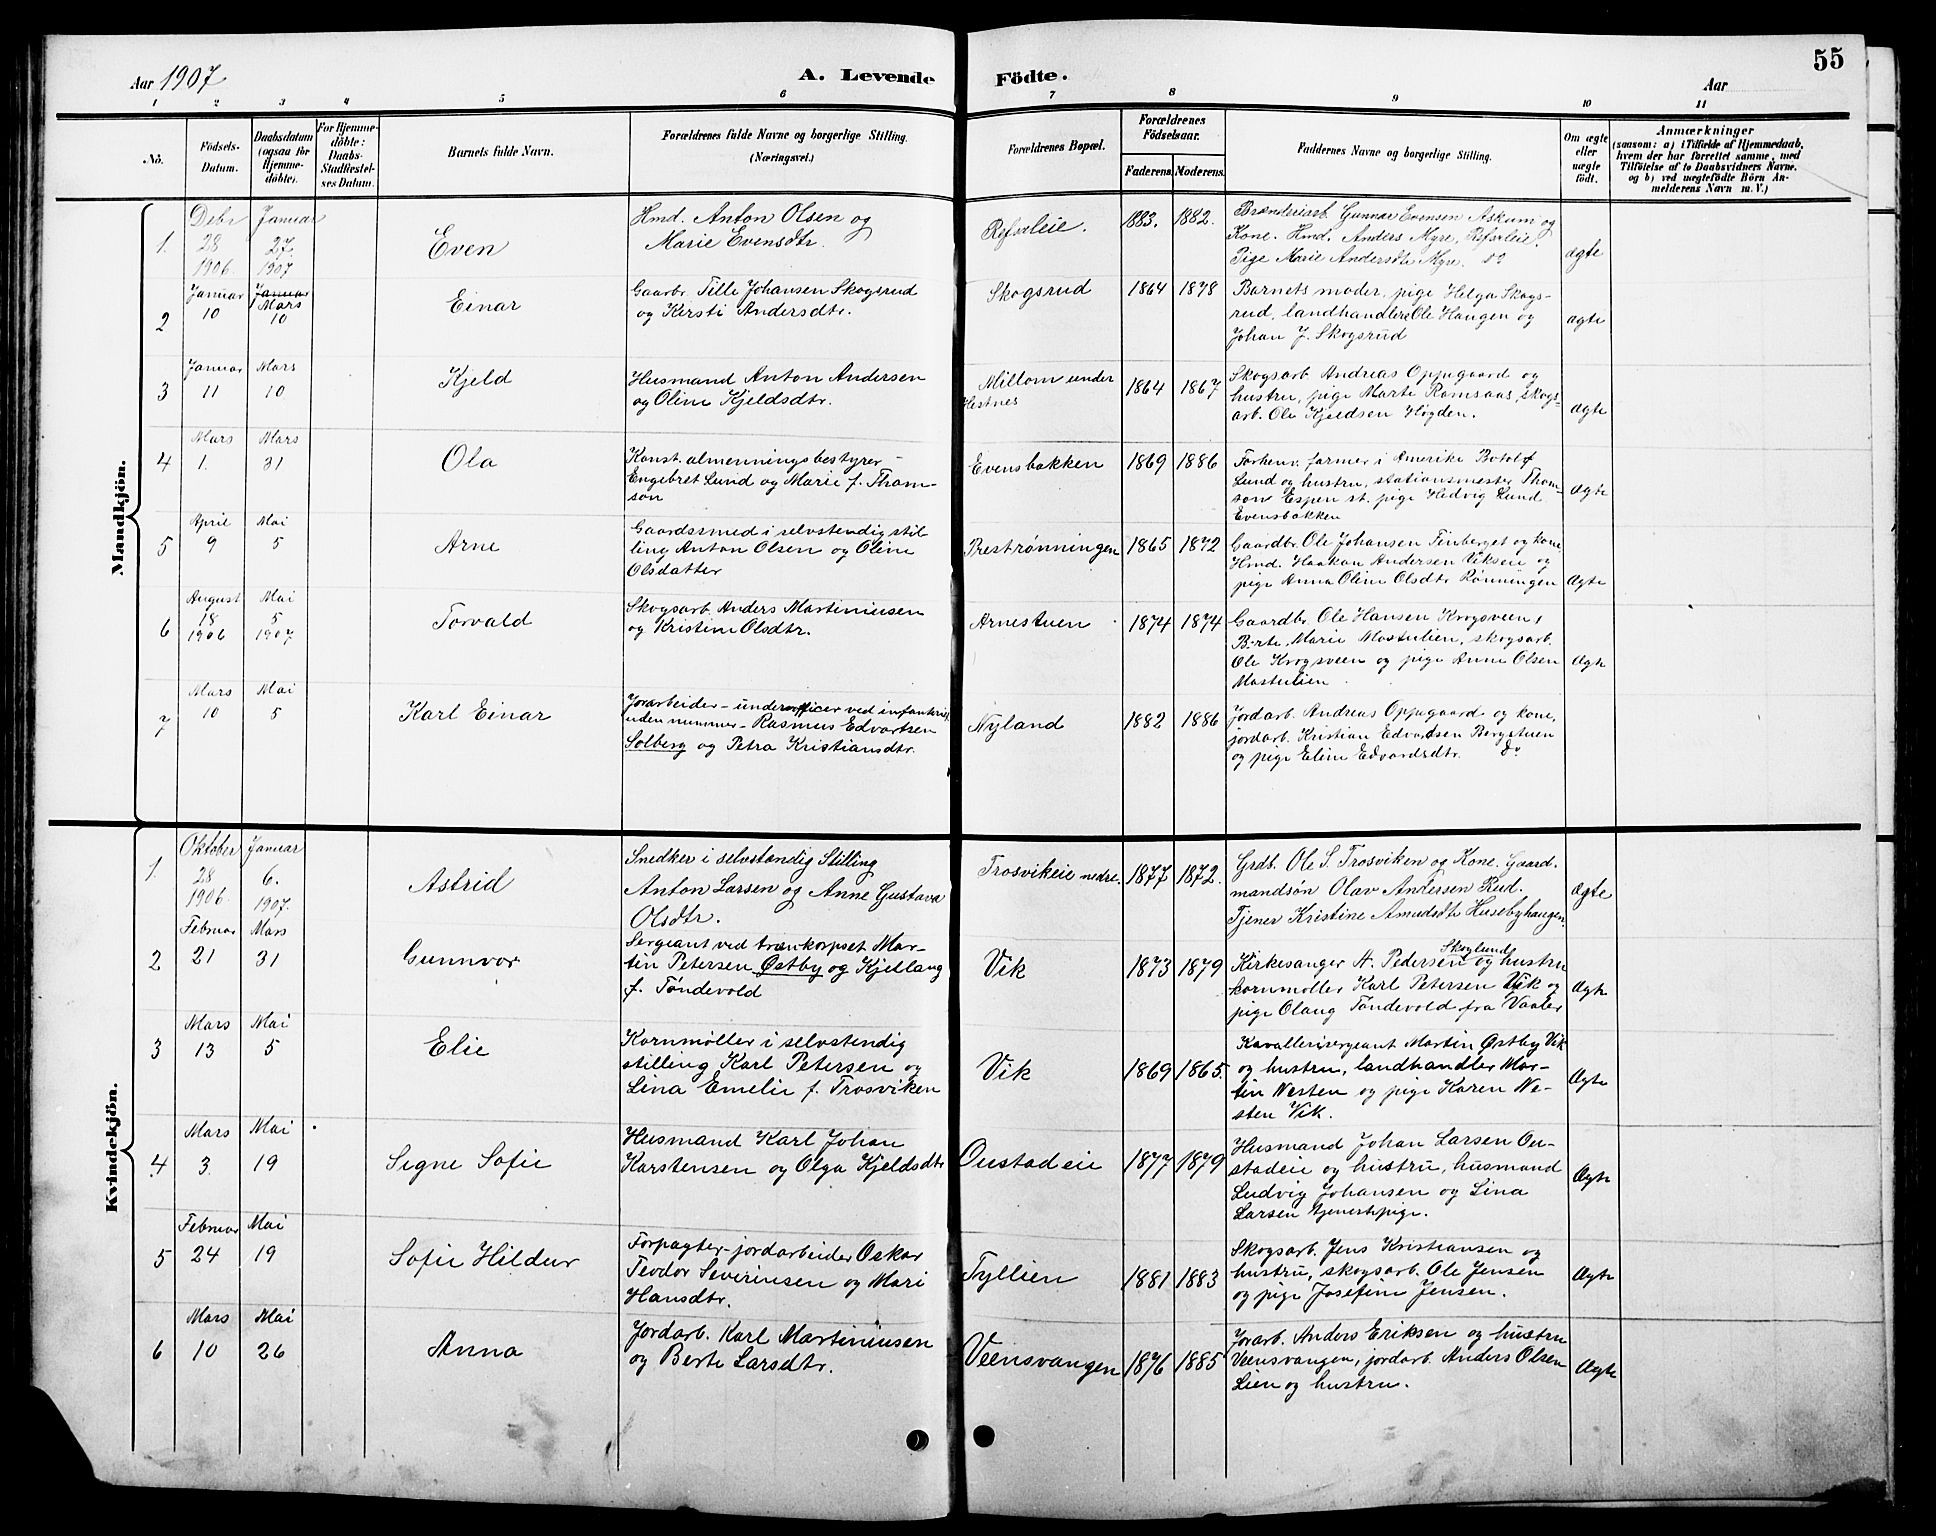 55
Aar 1907
A. Levende
Födte.
Aar
1 2 3 4 5 6 7 8 9 10 11
No.
Födsels-
Datum.
Daabsdatum
(ogsaa for
Hjemme-
döbte).
For Hjemme-
döbte:
Daabs-
Stadfæstel-
ses Datum.
Barnets fulde Navn.
Forældrenes fulde Navne og borgerlige Stilling.
(Næringsvei.)
Forældrenes Bopæl.
Forældrenes
Födselsaar.
Faderens.
Moderens.
Faddernes Navne og borgerlige Stilling.
Om ægte
eller
uægte
födt.
Anmærkninger
(saasom: a) i Tilfælde af Hjemmedaab,
hvem der har forrettet samme, med
Tilföielse af to Daabsvidners Navne.
og b) ved uægtefödte Börn An-
melderens Navn m. V.)
Mandkjön.
1.
Debr
28
1906.
Januar
27.
1907
Even
Hmd. Anton Olsen og
Marie Evensdtr.
Refsaleie.
1883.
1882.
Brænderiarb. Gunnar Evensen Askum og
Kone. Hmd. Anders Myre, Refsaleie.
Pige Marie Andersdtr Myre. do
ægte
2
Januar
10
Januar
Mars
10
Einar
Gaarbr. Tille Johansen Skogsrud
og Kersti Andersdtr.
Skogsrud
1864
1878
Barnets moder, pige Helga Skogs-
rud, landhandlere Ole Haugen og
Johan J. Skogsrud
ægte
3
Januar
11
Mars
10
Kjeld
Husmand Anton Andersen
og Oline Kjeldsdtr.
Millom under
Hestnes
1864
1867
Skogsarb. Andreas Oppegaard og
hustru, pige Marte Ramsaas, skogs-
arb. Ole Kjeldsen Høgden.
ægte
4
Mars
1.
Mars
31
Ola
Konst. almenningsbestyrer -
Engebret Lund og Marie f. Thom-
son
Evensbakken
1869
1886
Forhenv. farmer i Amerika Botolf
Lund og hustru, stationsmester Thom-
son Espen st. pige Hedvig Lund
Evensbakken
Ægte
5
April
9
Mai
5
Arne
Gaardssmed i selvstendig stil-
ling Anton Olsen og Oline
Olsdatter
Prestrønningen
1865
1872
Gaardbr. Ole Johansen Finberget og kone,
Hmd. Haakon Andersen Vikseie og
pige Anna Oline Olsdtr Rønningen
Ægte
6
August
18
1906
Mai
5
1907
Torvald
Skogsarb. Anders Martiniusen
og Kristine Olsdtr.
Arnestuen
1874
1874
Gaardbr. Ole Hansen Krogsveen,
Berte Marie Mastulien, skogsarb.
Ole Krogsveen og pige Anne Olsen
Mastulien.
Ægte
7
Mars
10
Mai
5
Karl Einar
Jorarbeider - underofficer ved infanteriet
uden nummer - Rasmus Edvartsen
Solberg og Petra Kristiansdtr.
Nyland
1882
1886
Jordarb. Andreas Oppegaard og kone,
jordarb. Kristian Edvardsen Bergstuen
og pige Eline Edvardsdtr. do
Kvindekjön.
1.
Oktober
28
1906.
Januar
6.
1907.
Astrid
Snedker i selvstændig Stilling
Anton Larsen og Anne Gustava
Olsdtr.
Trosvikeie nedre.
1877
1872.
Grdb. Ole S. Trosviken og Kone. Gaard-
mandsön Olav Andersen Rud.
Tjener Kristine Amundsdtr Husebyhaugen.
Ægte
2
Februar
21
Mars
31
Gunnvor
Sergeant ved trænkorpset Mar-
tin Petersen Østby og Kjellaug
f. Töndevold
Vik
1873
1879
Kirkesanger A. Pedersen Skoglund og hustru
kornmøller Karl Petersen Vik og
pige Olaug Töndevold fra Vaaler
Ægte
3
Mars
13
Mai
5
Elie
Kornmøller i selvstendig
stilling Karl Petersen og
Lina Emelie f. Trosviken
Vik
1869
1865.
Kavallerisergeant Martin Østby Vik
og hustru, landhandler Mar-
tin Nesten og pige Karen Ne-
sten Vik.
Ægte
4
Mars
3.
Mai
19
Signe Sofie
Husmand Karl Johan
Karstensen og Olga Kjeldsdtr
Oustadeie
1877
1879
Husmand Johan Larsen Ou-
stadeie og hustru, husmand
Ludvig Johansen og Lina
Larsen tjenestepige.
Ægte
5
Februar
24
Mai
19
Sofie Hildur
Forpagter-jordarbeider Oskar
Teodor Severinsen og Mari
Hansdtr.
Tyllien
1881
1883
Skogsarb. Jens Kristiansen og
hustru, skogsarb. Ole Jensen
og pige Josefine Jensen.
Ægte
6
Mars
10
Mai
26
Anna
Jordarb. Karl Martiniusen
og Berte Larsdtr.
Veensvangen
1876
1885
Jorarb. Anders Eriksen og hustru
Veensvangen, jordarb. Anders Olsen
Lien og hustru.
Ægte